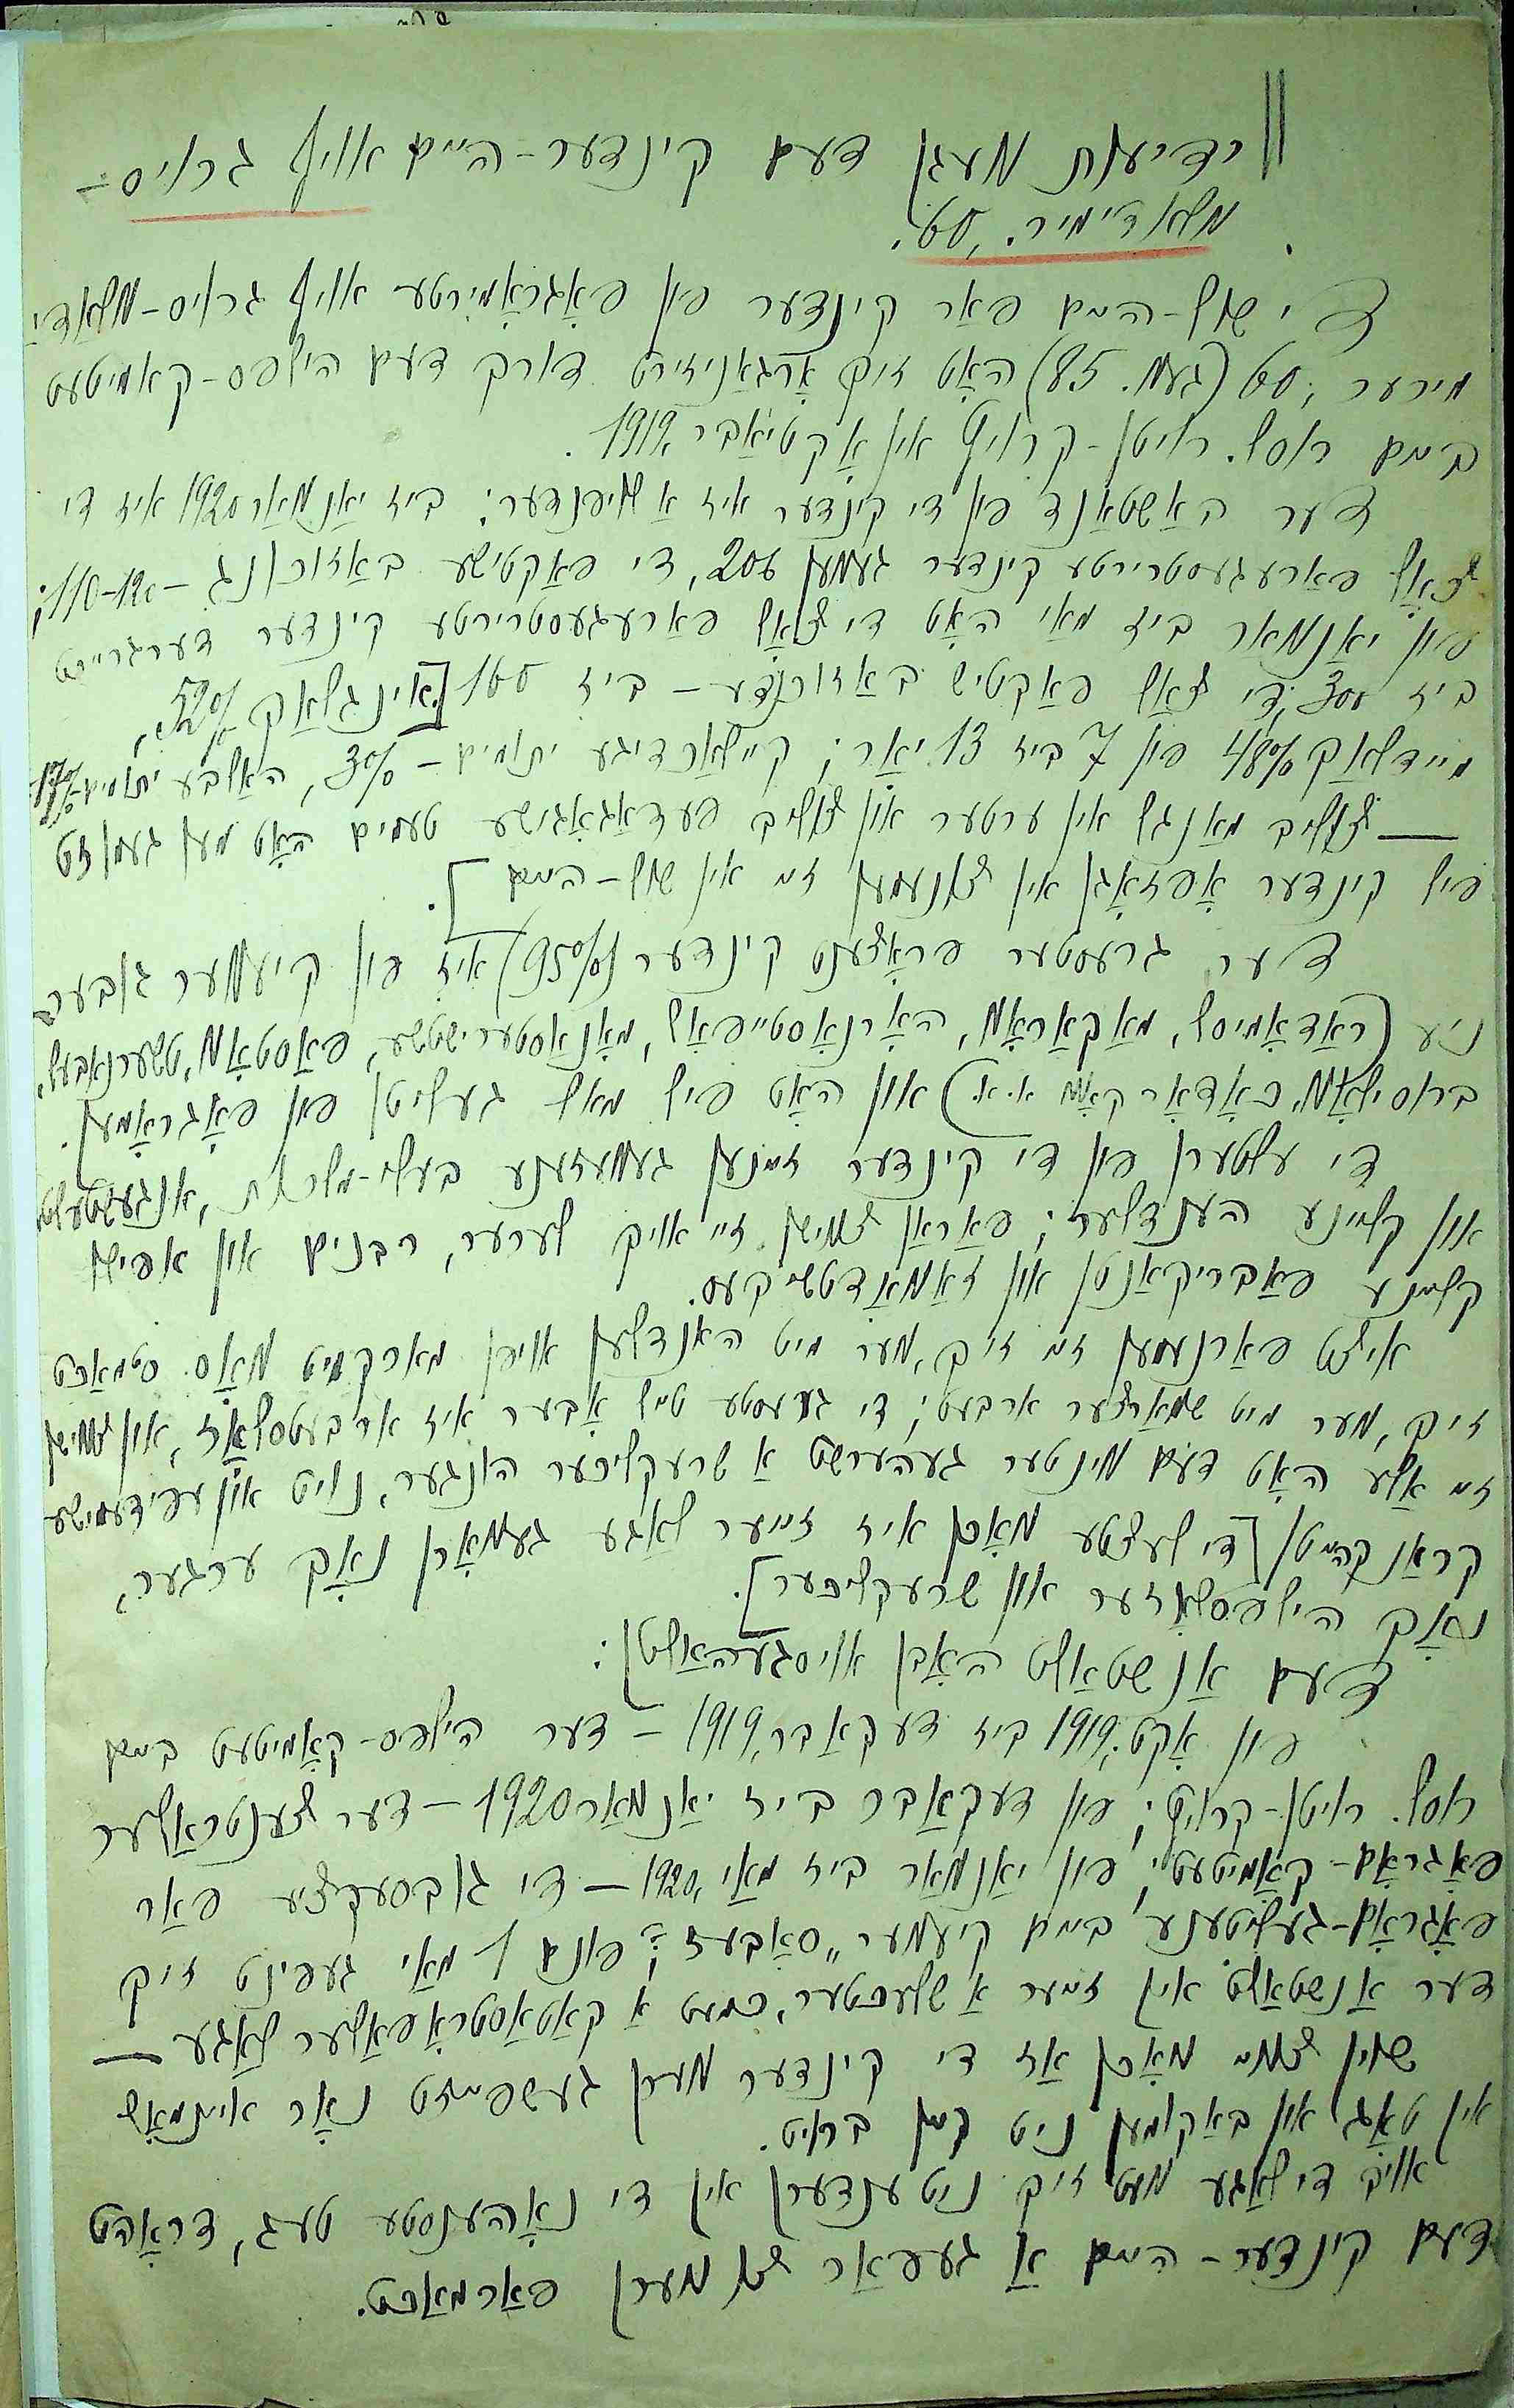 ידיעות וועגן דעם קינדער-היים אויף גרויס-
וולאדימיר. סט.
די שול-היים פאַר קינדער פון פּאָגראָמירטע אויף גרויס-וולאַדי
מירער, סט (געוו. 85) האָט זיך אָרגאַניזירט דורך דעם הילפס-קאמיטעט
ביים רוסל. רויטן-קרייץ אין אָקטיאַבר 1919.
דער באַשטאַנד פון די קינדער איז אַ אַליפנדער: ביז יאַנוואַר 1920 איז די
צאָל פאַרעגעסטרירטע קינדער געווען 206, די פאַקטישע באַזוכונג – 110-120;
פון יאַנוואַר ביז מאַי האָט די צאָל פאַרעגעסטרירטע קינדער דערגרייכט
ביז 300, די צאָל פאַקטיש באַזוכנדע – ביז 160 [אינגלאַך 52%,
מיידלאַך 48% פון 7 ביז 13 יאָר; קיילאַכדיגע יתומים – 30%, האַלבע יתומים – 17%
— צוליב מאַנגל אין ערטער און צוליב פּעדאַגאָגישע טעמים האָט מען געמוזט
פיל קינדער אָפּזאָגן אין צונעמען זיי אין שול-היים].
דער גרעסטער פּראָצענט קינדער (95%) איז פון קיעווער גובער
ניע (ראַדאָמיסל, מאַקאַראָוו, האָרנאָסטייפּאָל, מאָנאַסטערישטשע, פאַסטאָוו, טשערנאָבעל,
ברוסילאָוו, כאָדאָרקאָוו א. א.) און האָט פיל מאָל געליטן פון פּאָגראָמען.
די עלטערן פון די קינדער זיינען געוועזענע בעלי-מלאכות, אָנגעשטעלטע
און קליינע הענדלער; פאַראַן צווישן זיי אויך לערער, רבנים און אפילו
קליינע פאַבריקאַנטן און זאַוואָדטשיקעס.
איצט פאַרנעמען זיי זיך, ווער מיט האַנדלען אויפן מאַרק מיט וואָס סטמאַכט
זיך, ווער מיט שוואַרצער ארבעט; די גרעסטע טייל אָבער איז ארבעטסלאָז, און צווישן
זיי אַלע האָט דעם ווינטער געהערשט אַ שרעקליכער הונגער, נויט און עפּידעמישע
קראַנקהייטן [די לעצטע וואָכן איז זייער לאַגע געוואָרן נאָך ערגער,
נאָך הילפסלאָזער און שרעקליכער].
דעם אַנשטאַלט האָבן אויסגעהאַלטן:
פון אָקט. 1919 ביז דעקאַבר, 1919 – דער הילפס-קאָמיטעט ביים
רוסל. רויטן-קרייץ; פון דעקאַבר ביז יאַנוואַר 1920 – דער צענטראַלער
פּאָגראָם-קאָמיטעט; פון יאַנוואַר ביז מאַי, 1920 – די גובסעקציע פאַר
פּאָגראָם-געליטענע ביים קיעווער „סאָבעז"; פונם 1 מאַי געפינט זיך
דער אַנשטאַלט אין זייער אַ שלעכטער, כמעט אַ קאַטאַסטראָפאַלער לאַגע —
שוין צוויי וואָכן אַז די קינדער ווערן געשפּייזט נאָר איינמאָל
אין טאָג און באַקומען ניט קיין ברויט.
אויב די לאַגע וועט זיך ניט ענדערן אין די נאָהענסטע טעג, דראָהט
דעם קינדער-היים אַ געפאַר צו ווערן פאַרמאַכט.